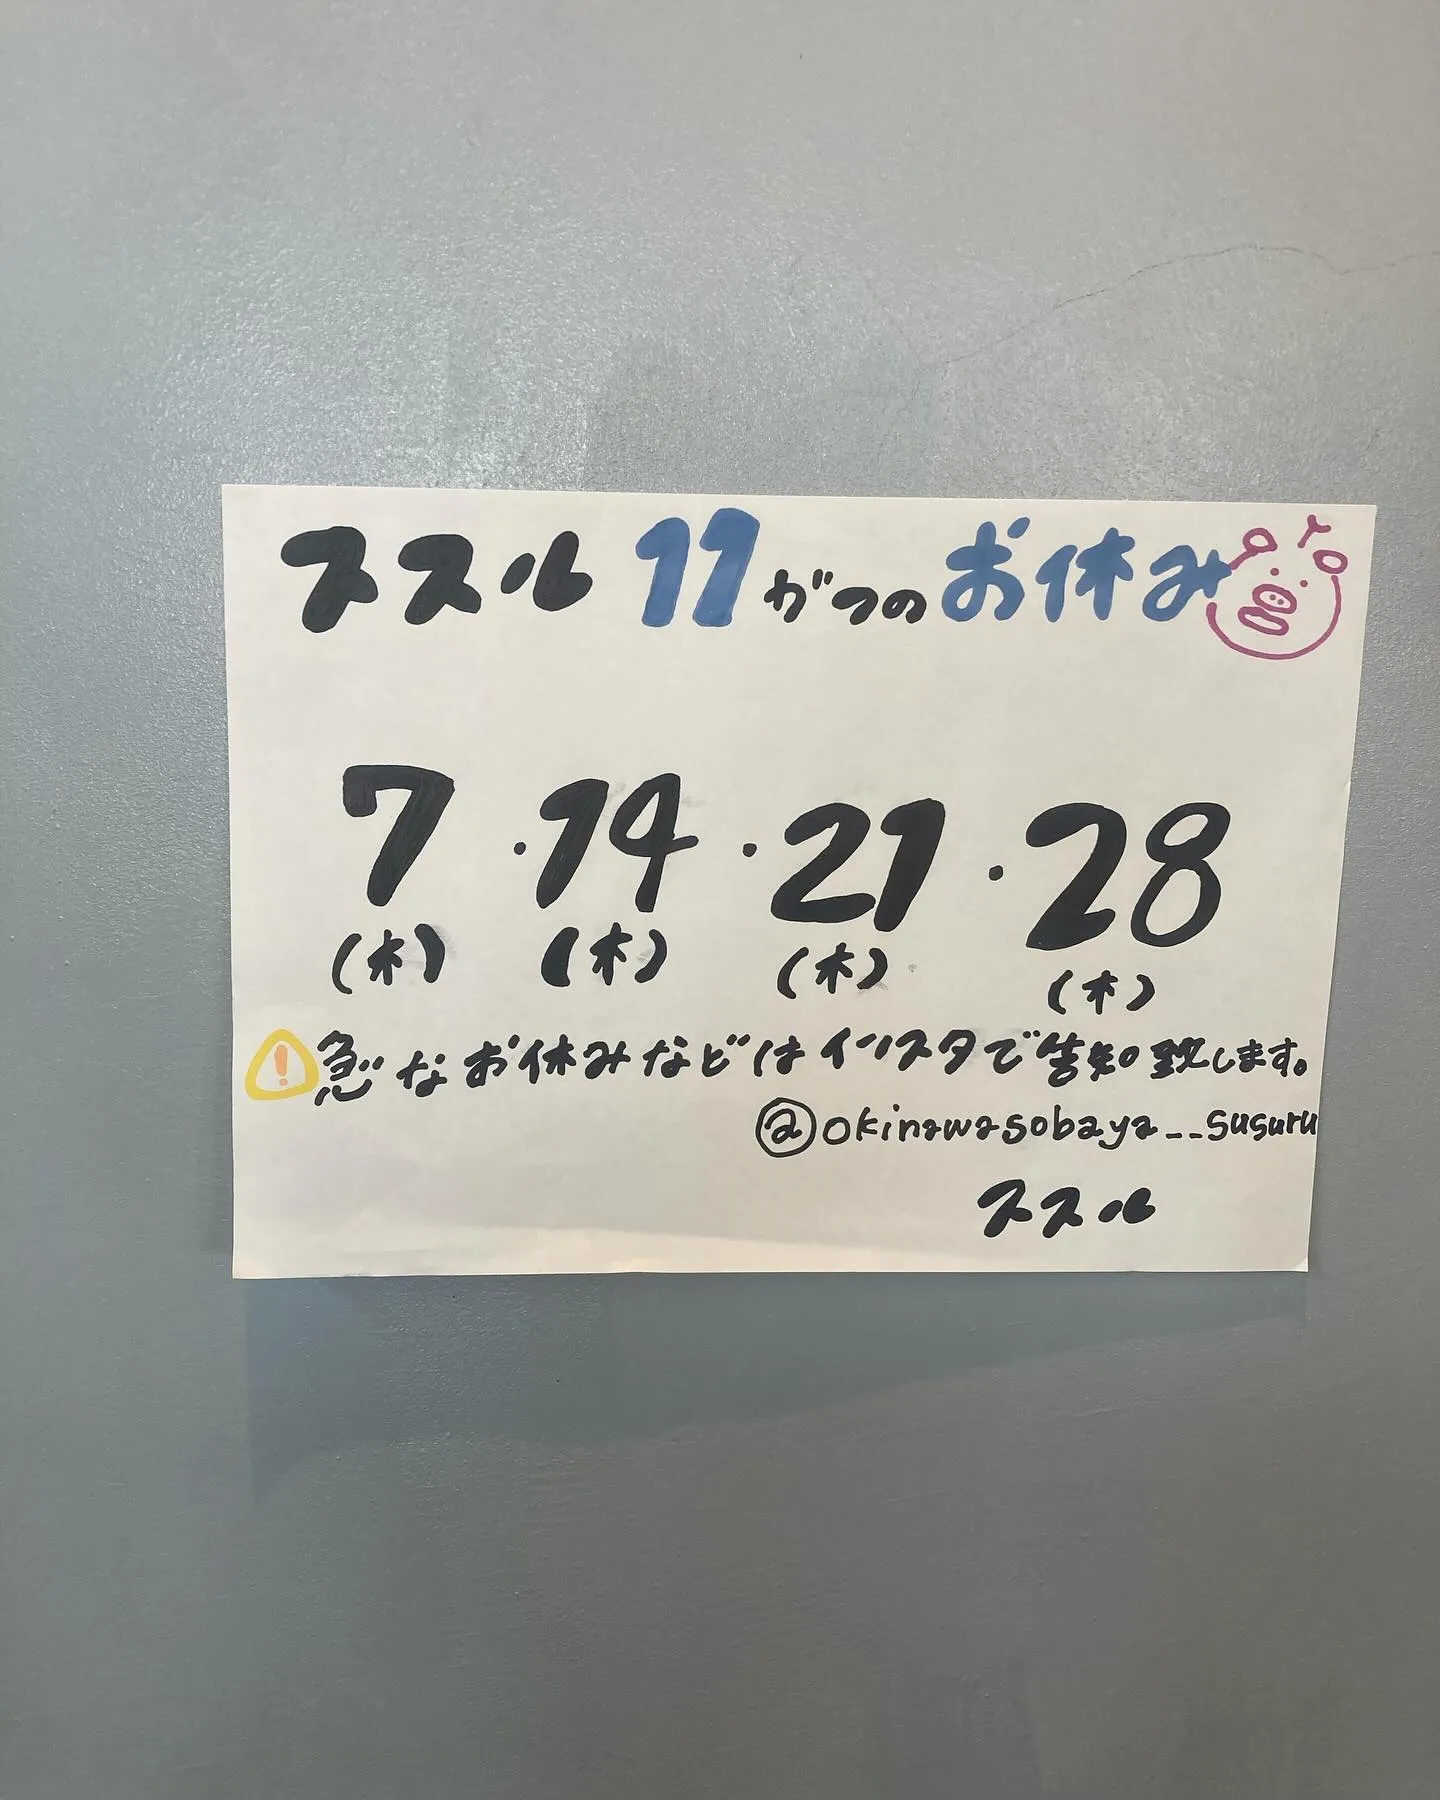 ススル 11がつのお休み
7・14・21・28
(木) (木) (木) (木)
急なお休みなどはインスタで告知致します。
@okinawasobaya__susuru
ススル